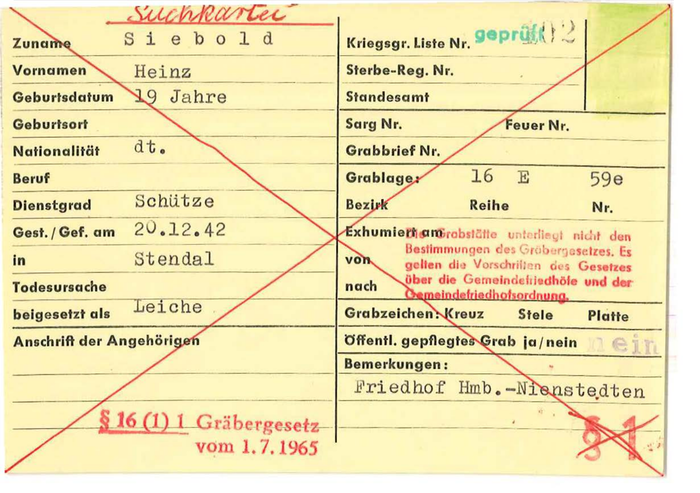 Suchkartei
Zuname Siebold
Vornamen Heinz
Geburtsdatum 19 Jahre
Geburtsort
Nationalität dt.
Beruf
Dienstgrad Schütze
Gest./Gef. am 20.12.42
in Stendal
Todesursache
beigesetzt als Leiche
Anschrift der Angehörigen
§ 16 (1) 1 Gräbergesetz
vom 1.7.1965
Kriegsgr. Liste Nr. geprüft 102
Sterbe-Reg. Nr.
Standesamt
Sarg Nr. Feuer Nr.
Grabbrief Nr.
Grablage: 16 E 59e
Bezirk Reihe Nr.
Exhumiert am
von
nach
Die Grabstätte unterliegt nicht den
Bestimmungen des Gräbergesetzes. Es
gelten die Vorschriften des Gesetzes
über die Gemeindefriedhöfe und der
Gemeindefriedhofsordnung.
Grabzeichen: Kreuz Stele Platte
Öffentl. gepflegtes Grab ja/nein nein
Bemerkungen:
Friedhof Hmb.-Nienstedten
§ 1